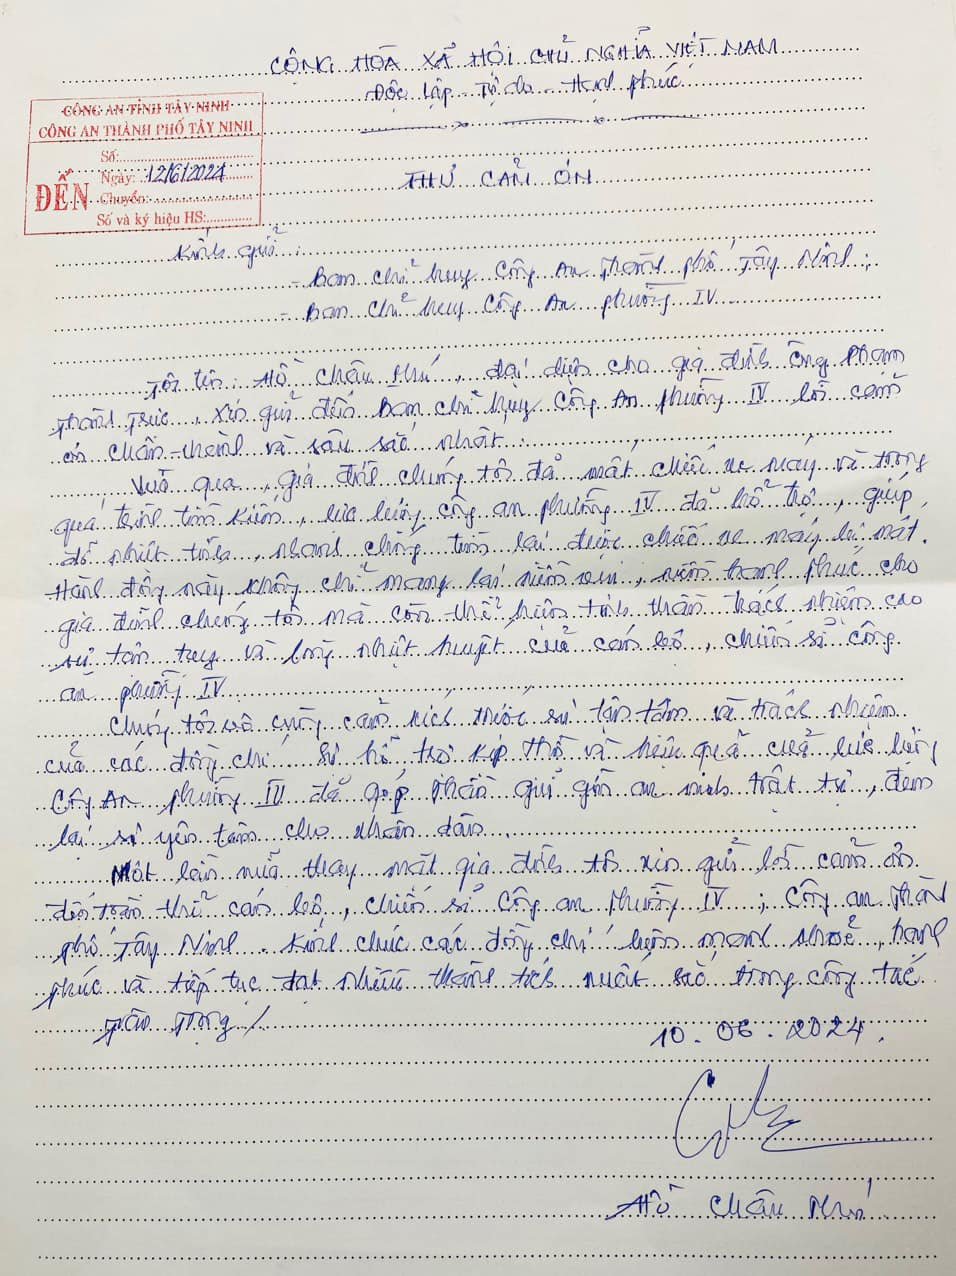 CỘNG HÒA XÃ HỘI CHỦ NGHĨA VIỆT NAM
Độc lập - Tự do - Hạnh phúc
CÔNG AN TỈNH TÂY NINH
CÔNG AN THÀNH PHỐ TÂY NINH
ĐẾN
Số:
Ngày: 12/6/2024
Chuyển:
Số và ký hiệu HS:
THƯ CẢM ƠN
Kính gửi:
- Ban chỉ huy Công An thành phố Tây Ninh;
- Ban chỉ huy Công An phường IV
Tôi tên: Hồ Châu Nhú, đại diện cho gia đình ông Phạm
Thành Trực, xin gửi đến Ban chỉ huy Công An phường IV lời cảm
ơn chân thành và sâu sắc nhất.
Vừa qua, gia đình chúng tôi đã mất chiếc xe máy và trong
quá trình tìm kiếm, lực lượng công an phường IV đã hỗ trợ, giúp
đỡ nhiệt tình, nhanh chóng tìm lại được chiếc xe máy bị mất.
Hành động này không chỉ mang lại niềm vui, niềm hạnh phúc cho
gia đình chúng tôi mà còn thể hiện tinh thần trách nhiệm cao
sự tận tụy và lòng nhiệt huyết của cán bộ, chiến sĩ công
an phường IV
Chúng tôi vô cùng cảm kích trước sự tận tâm và trách nhiệm
của các đồng chí. Sự hỗ trợ kịp thời và hiệu quả của lực lượng
Công An phường IV đã góp phần giữ gìn an ninh trật tự, đem
lại sự yên tâm cho nhân dân.
Một lần nữa thay mặt gia đình tôi xin gửi lời cảm ơn
đến toàn thể cán bộ, chiến sĩ Công an Phường IV; Công an thành
phố Tây Ninh. Kính chúc các đồng chí luôn mạnh khoẻ, hạnh
phúc và tiếp tục đạt nhiều thành tích xuất sắc trong công tác.
Trân trọng /
10.06.2024.
Hồ Châu Nhú